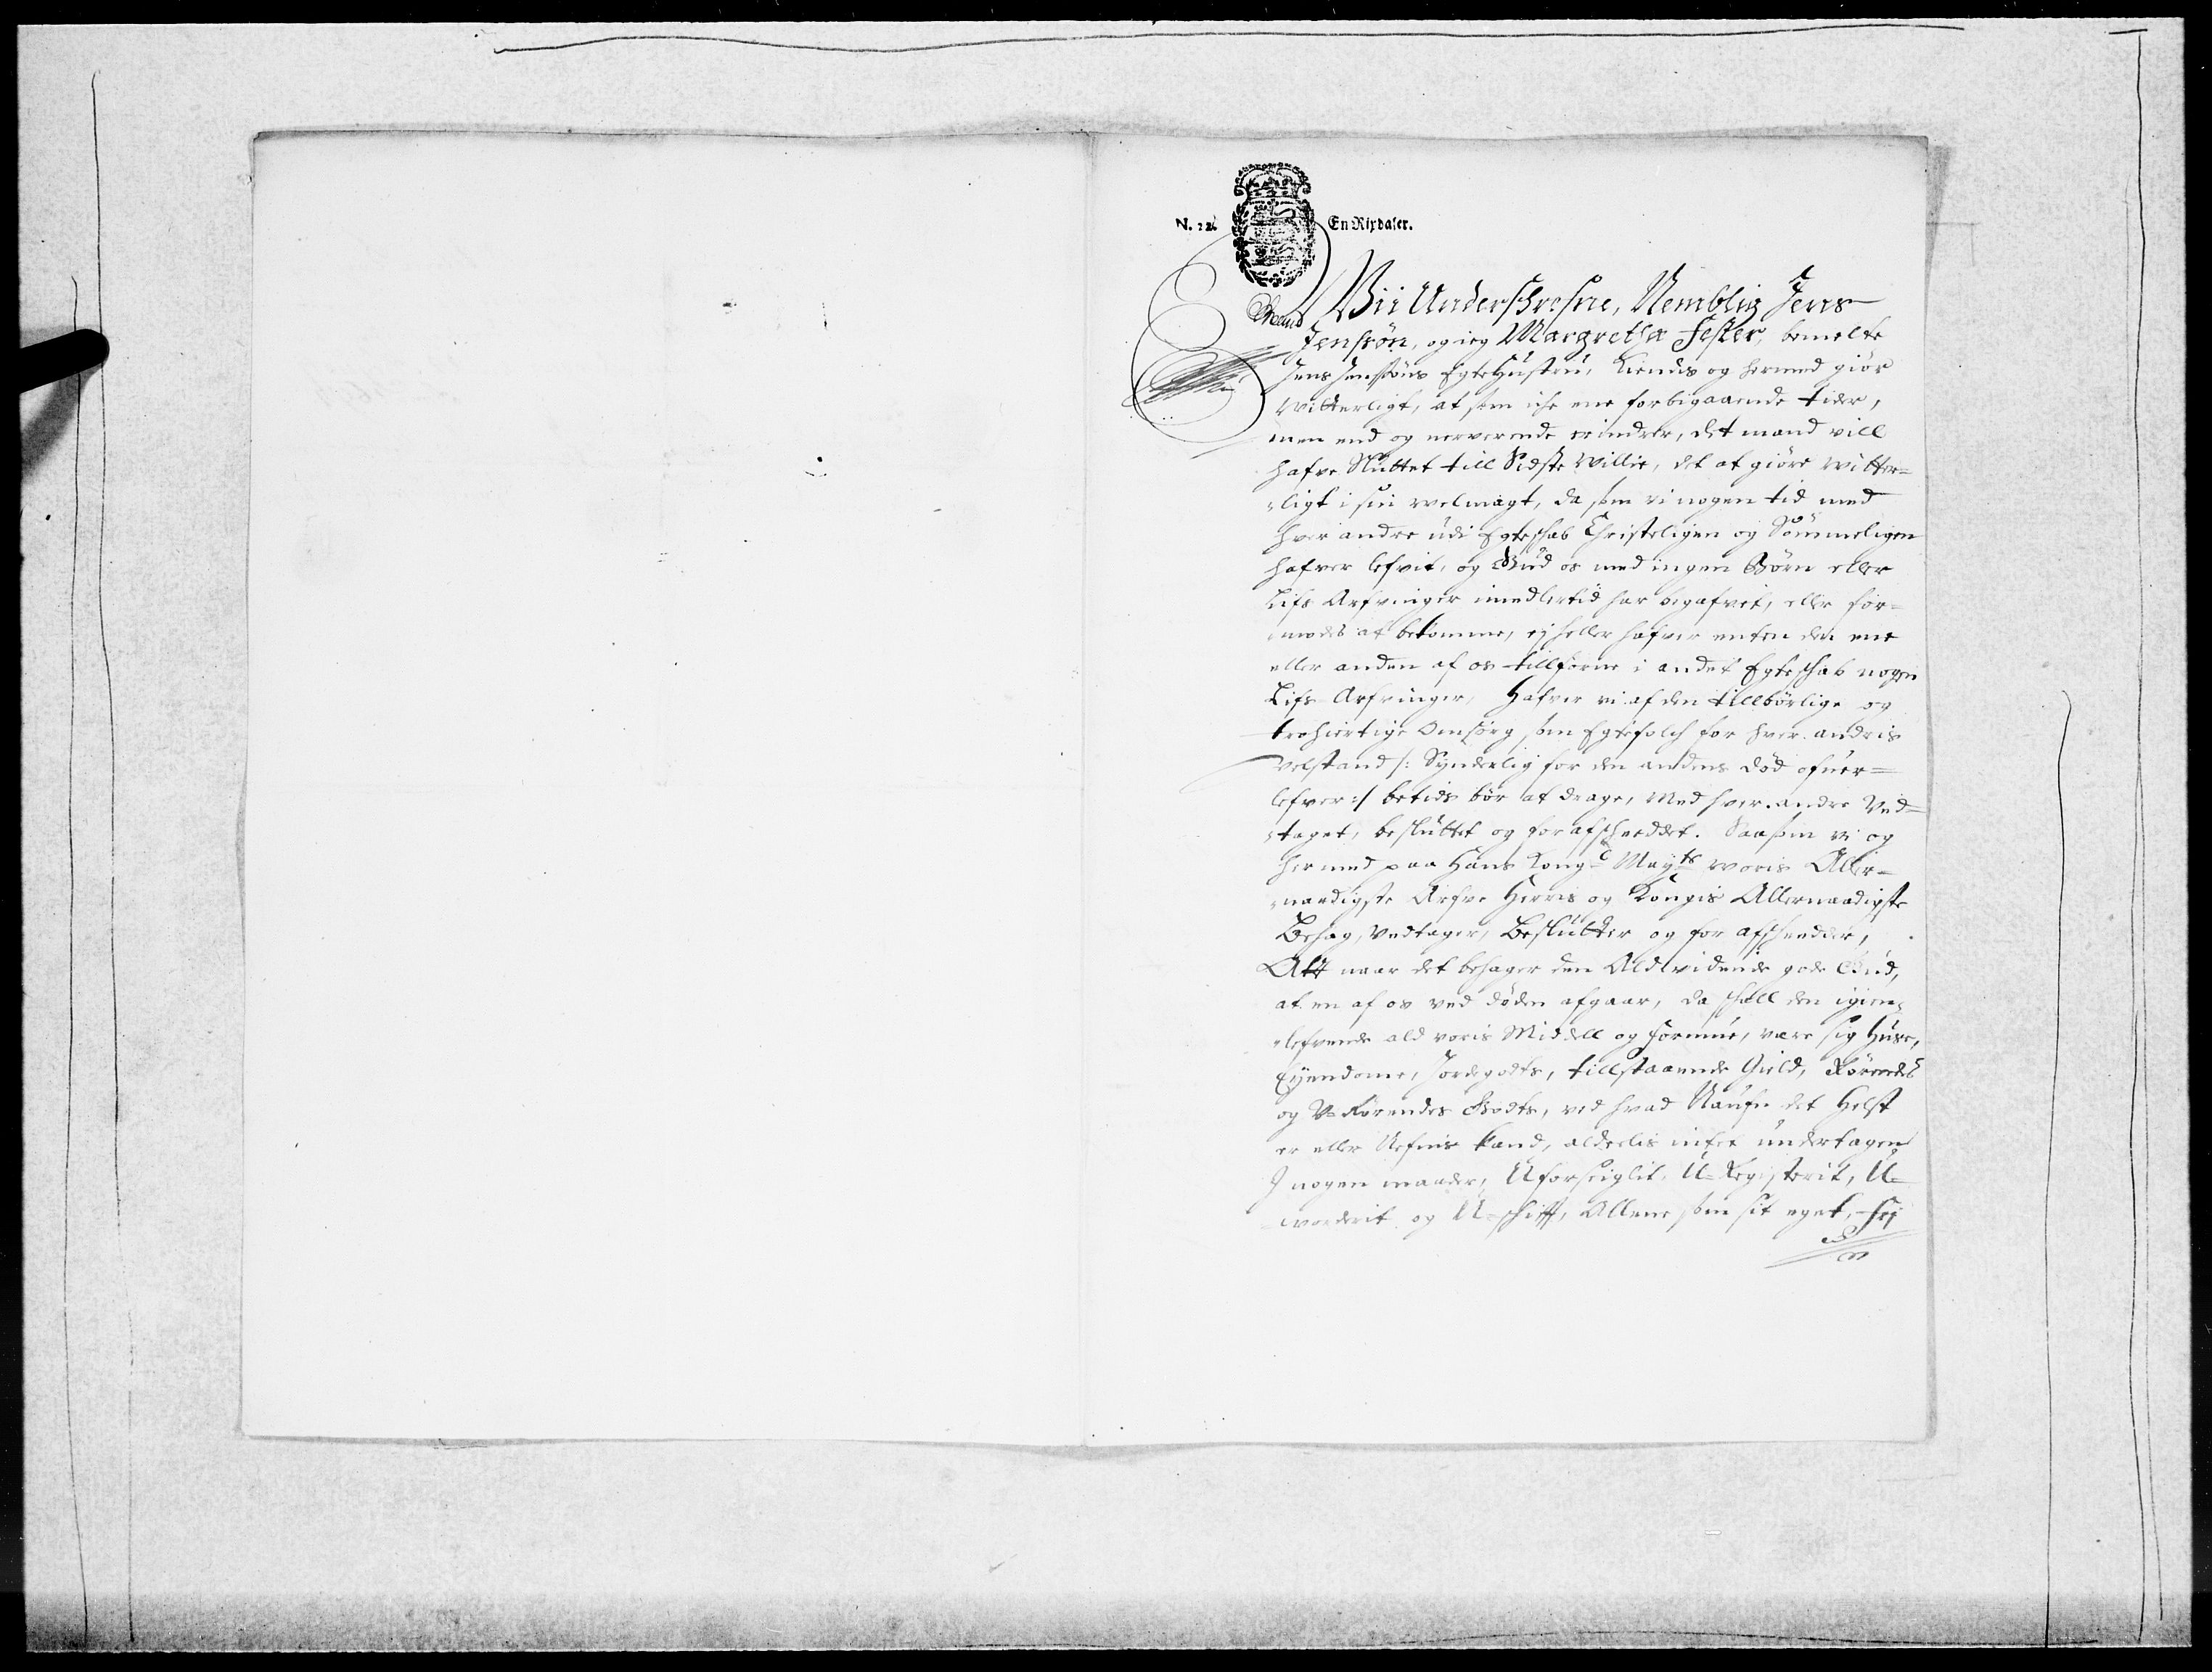 N. 22 En Rixdaler.
Wii Underschrefne, Nemblig Jens
Jensøn, og ieg Margretha Fester, bemelte
Jens Jensøns Egte Hustru, Kiendis og hermed giør
vitterligt, at som iche ene forbigaaende tider,
men end og nerverende erindrer, det mand vill
hafve Sluttet till Sidste Villie, det at giøre witter=
ligt i sin velmagt, da som vi nogen tid med
hver andre udi Egteschab Christeligen og Sømmeligen
hafver lefvit, og Gud os med ingen Børn eller
Lifs Arfvinger imedlertid har begafvet, eller for=
modes at bekomme, ej heller hafver enten den ene
eller anden af os tillforne i andet Egteschab nogen
Lifs Arfvinger, Hafver vi af den tillbørlige og
trohiertige Omsorg som Egtefolch for hver andris
velstand /: Synderlig for den andens død ofver=
lefver :/ betids bør at drage, Med hver andre Ved=
taget, besluttet og forafscheedet. Saasom vi og
hermed paa Hans Kongl Mayts woris Aller=
naadigste Arfve Herris og Kongis Allernaadigste
Behag, Vedtager, Beslutter og for afscheeder,
Att naar det behager den Aldvidende gode Gud,
at en af os ved døden afgaar, da schall den igien=
lefvende ald voris Middell og formue, være sig Huse,
Eyendome, Jordegodts, tillstaaende Gield, Rørendes
og V=Rørendes Godts, ved hvad Naufn det Helst
er eller Nefnis kand, alderlis intet undertagen
J nogen maader, Uforseiglit, U=Registerit, U=
vorderit og U=schifft, Allene som sit eget, frj